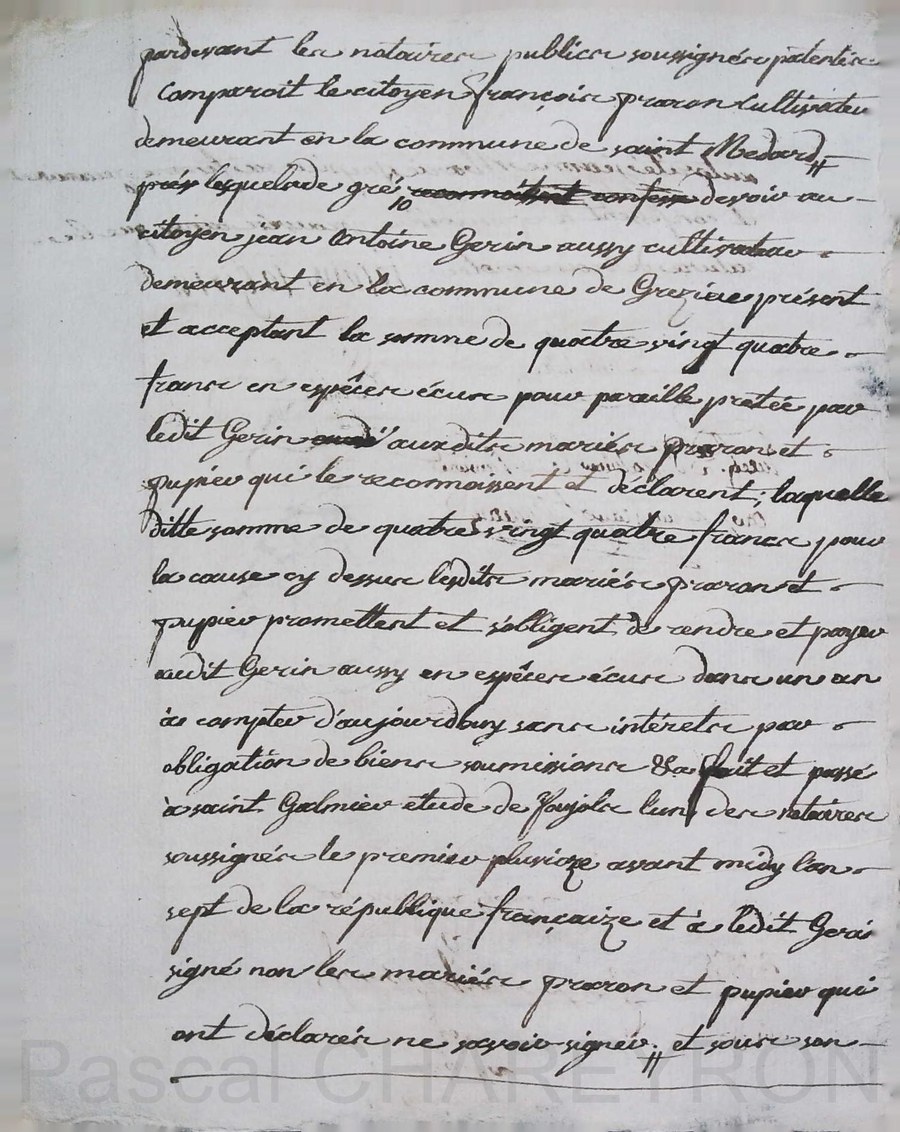 pardevant les notaires publics soussignés patentés
Comparoit le citoyen françois praron Cultivateur
demeurant en la commune de saint Medard //
près lesquela de gré reconnoissent confesse devoir au
10
citoyen jean Antoine Gerin aussy cultivateur
demeurant en la commune de Grezieu présent
et acceptant la somme de quatre vingt quatre
francs en espéces écus pour pareille pretée par
ledit Gerin auxdits mariés praron et
pupier qui le reconnoissent et déclarent ; laquelle
ditte somme de quatre vingt quatre francs pour
la cause cy dessus lesdits mariés praron et
pupier promettent et s'obligent de rendre et payer
audit Gerin aussy en espéces écus dans un an
à compter d'aujourdhuy sans intérets par
obligation de biens soumissions &a fait et passé
à saint Galmier etude de Pujols l'un des notaires
soussignés le premier pluvioze avant midy l'an
sept de la république françaize et à ledit Gerin
signé non les mariés praron et pupier qui
ont déclarés ne savoir signer. // et sous son
Pascal CHAREYRON